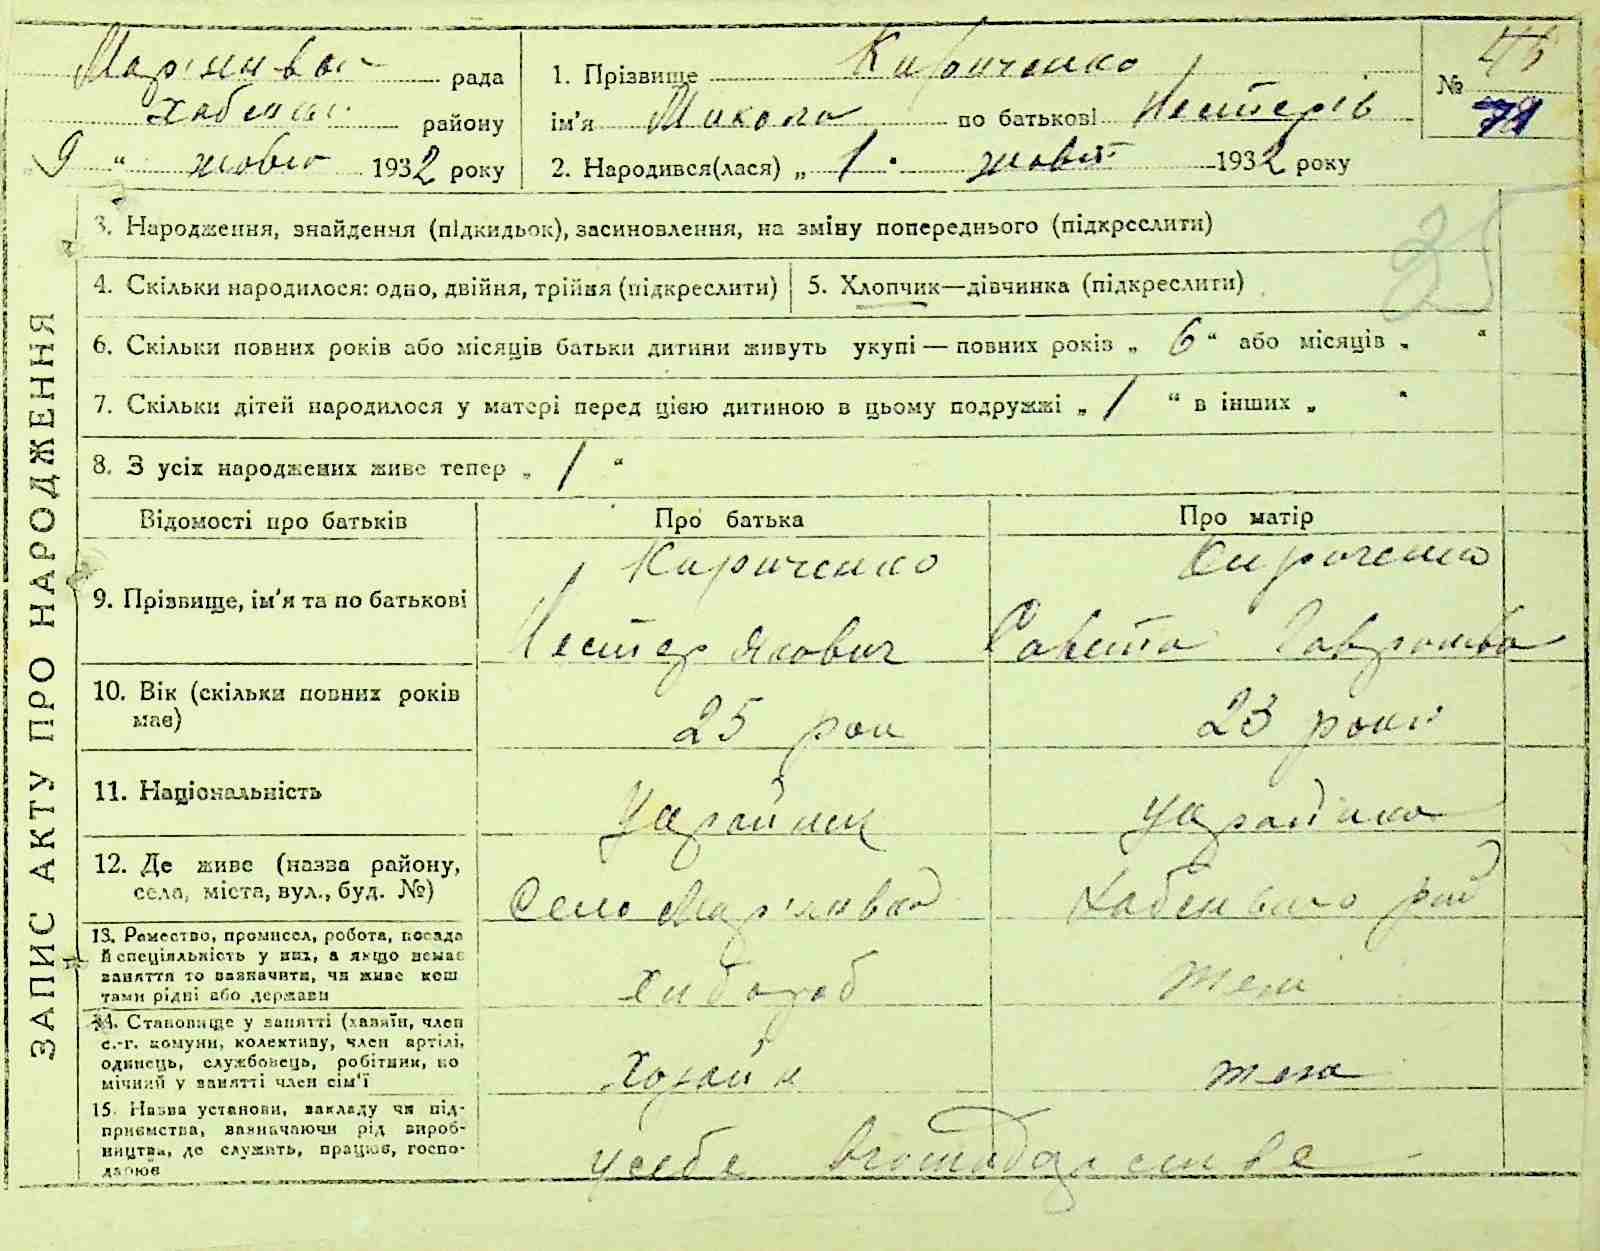 Мар'янівка рада
Хабенськ району
9 " жовтн 1932 року
1. Прізвище Кириченко
ім'я Микола по батькові Нестерів
2. Народився(лася) „ 1 " жовт 1932 року
№ 45
71
25
ЗАПИС АКТУ ПРО НАРОДЖЕННЯ
3. Народження, знайдення (підкидьок), засиновлення, на зміну попереднього (підкреслити)
4. Скільки народилося: одно, двійня, трійня (підкреслити)
5. Хлопчик—дівчинка (підкреслити)
6. Скільки повних років або місяців батьки дитини живуть укупі — повних років „ 6 " або місяців „ "
7. Скільки дітей народилося у матері перед цією дитиною в цьому подружжі „ 1 " в інших „ "
8. З усіх народжених живе тепер „ 1 "
Відомості про батьків Про батька Про матір
9. Прізвище, ім'я та по батькові
Кириченко
Нестер Якович
Кириченко
10. Вік (скільки повних років
має)
25 рок
23 роки
11. Національність
Украйнец
Украйінка
12. Де живе (назва району,
села, міста, вул., буд. №)
Село Мар'янівка
Хабенського рай
13. Ремество, промисел, робота, посада
й спеціяльність у них, а якщо немає
заняття то зазначити, чи живе кош
тами рідні або держави
Хлібороб
жена
14. Становище у занятті (хазяїн, член
с.-г. комуни, колективу, член артілі,
одинець, службовець, робітник, по
мічний у занятті член сім'ї
Хозайн
жена
15. Назва установи, закладу чи під-
приємства, зазначаючи рід вироб-
ництва, де служить, працює, госпо-
дарює
у себе